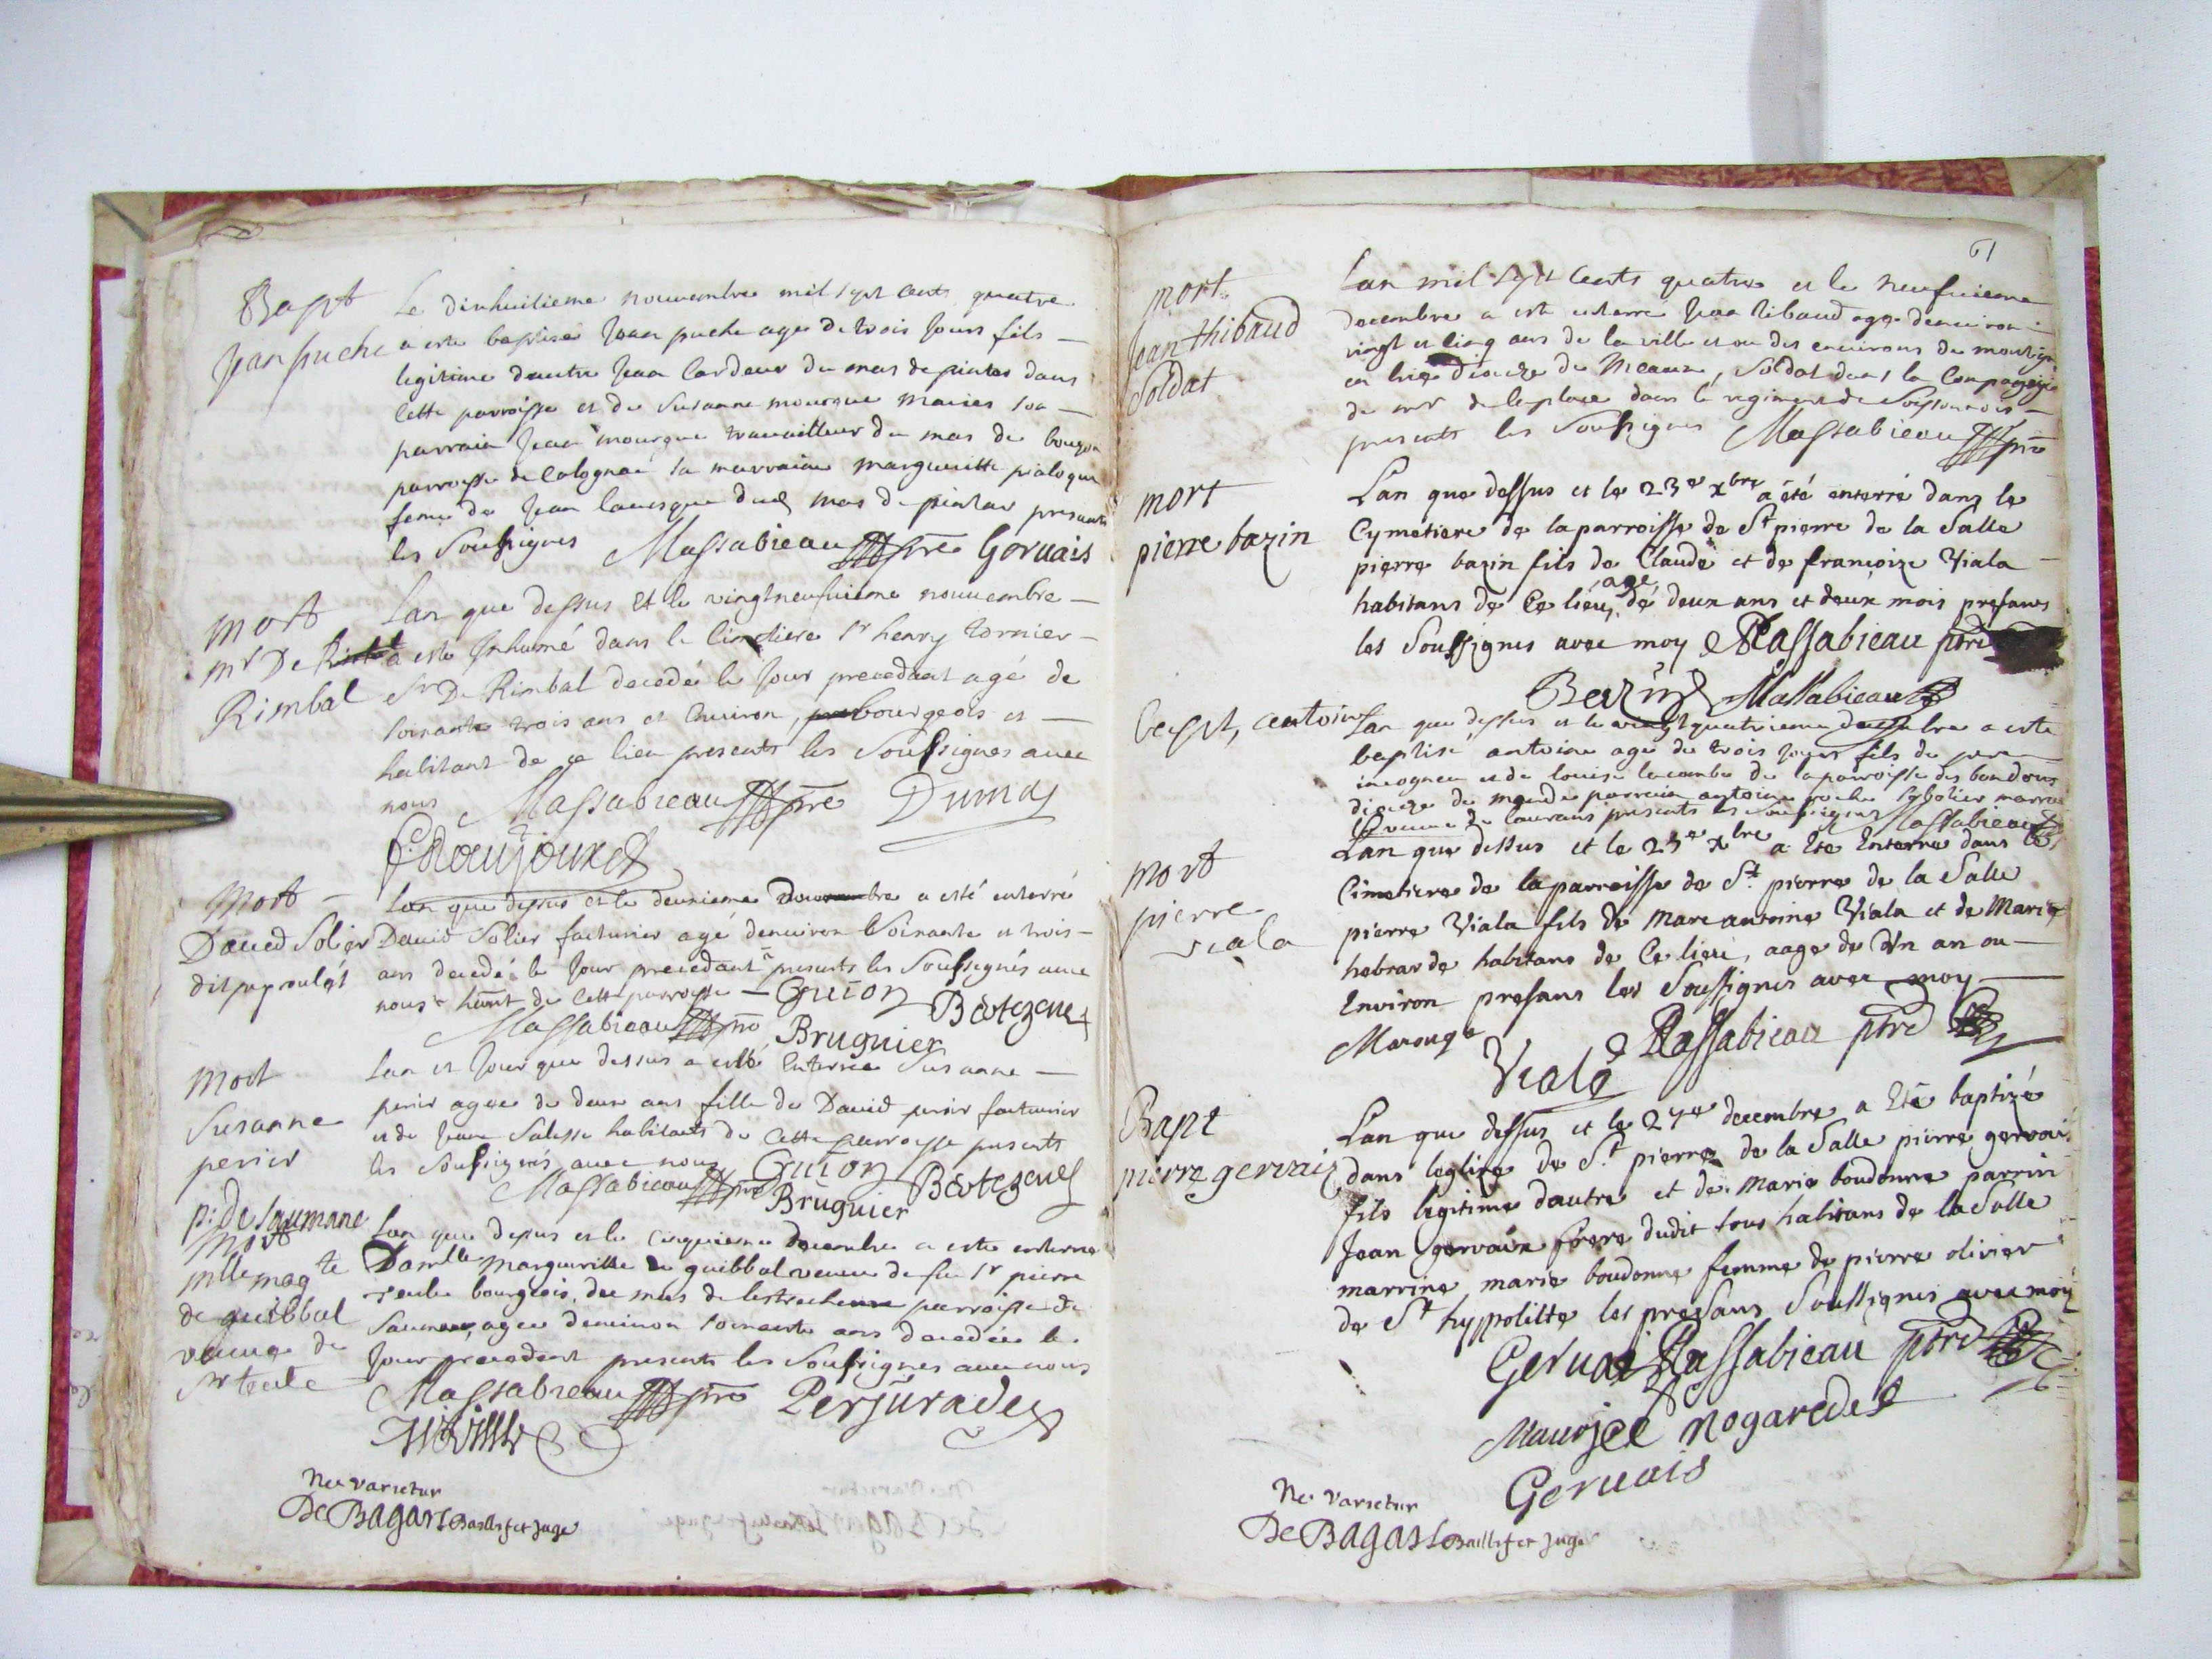 Bapt
Jean puche
Le dixhuitieme nouuembre mil sept cents quatre
a este baptisé Jean puche age de trois Jours fils
legitime dautre Jean Cardeur du mas de piatas dans
cette parroisse et de Susanne mourgue maries son
parrain Jean mourgue travailleur du mas de
parroisse de Colognac la marraine marguerite
feme de Jean dud mas de presents
les Soussignes Massabieau pre Geruais
mort
mr De
Rimbal
Lan que dessus Et le vingtneufuieme nouuembre
a este Inhumé dans le Cimetiere sr henry tornier
Sr De Rimbal decedé le Jour precedent agé de
soixante trois ans et Enuiron, bourgeois et
habitant de ce lieu presents les Soussignes auec
nous Massabieau pre Dumas
mort
Dauid Solier
dit
Lan que dessus et le deuxieme a esté enterré
Dauid Solier facturier agé denuiron Soixante et trois
ans decedé le Jour precedant presents les Soussignés auec
nous hant de Cette parroisse Guion Bertezene
Massabieau pre Brugnier
mort
Susanne
perier
Lan et Jour que dessus a esté Enterrée Susanne
perier agee de deux ans fille de Dauid perier facturier
et de Jeane habitants de Cette parroisse presents
les Soussignés auec nous Guion Bertezene
Massabieau pre Brugnier
p: de Saumane
mort
mlle magte
de guibbal
veuue de
Sr teule
Lan que dessus et le cinquieme decembre a este enterree
Damlle Margueritte de guibbal veuue de feu Sr pierre
teule bourgeois, du mas de parroisse de
agee denuiron soixante ans decedée le
Jour precedent presents les Soussignes auec nous
Massabieau pre Perjurade
Ne varietur
De Bagars Baillif et Juge
61
mort
Jean thibaud
Soldat
Lan mil sept Cents quatre et le neufuieme
decembre a este enterre Jean tibaud age denuiron
vingt et cinq ans de la ville et ou des enuirons de
en brie dioceze de Meaux, Soldat dans la Compagnie
de mr de laplace dans le regiment de Soissonnois
presents les Soussignes Massabieau pre
mort
pierre bazin
Lan que dessus et le 23e xbre a été enterré dans le
Cymetiere de la parroisse de St pierre de la Salle
pierre bazin fils de Claude et de françoize Viala
habitans de Ce lieu, agé de deux ans et deux mois presans
les Soussignes avec moy Massabieau ptre
Bazin Massabieau
bapt, antoine
Lan que dessus et le vingt quatrieme decembre a este
baptisé antoine age de trois jours fils de pere
incogneu et de louise lacombe de la parroisse des bondons
dioceze de mende parrain antoine
presents les Soussignes Massabieau
mort
pierre
viala
Lan que dessus et le 25e xbre a Eté Enterré dans le
Cimetiere de la parroisse de St pierre de la Salle
pierre Viala fils de Marc antoine Viala et de Marie
habitans de Ce lieu, aage de Vn an ou
Environ presans les Soussignes avec moy
Massabieau ptre
Viala
Bapt
pierre gervaix
Lan que dessus et le 27e decembre a Eté baptizé
dans leglize de St pierre de la Salle pierre gervaix
fils legitime dautre et de Marie boudonne parrin
Jean gervaix frere dudit tous habitans de la Salle
marrine marie boudonne femme de pierre olivier
de St hyppolitte les presans Soussignes avec moy
Geruais Massabieau ptre
Nogarede
Geruais
Ne varietur
De Bagars Baillif et Juge